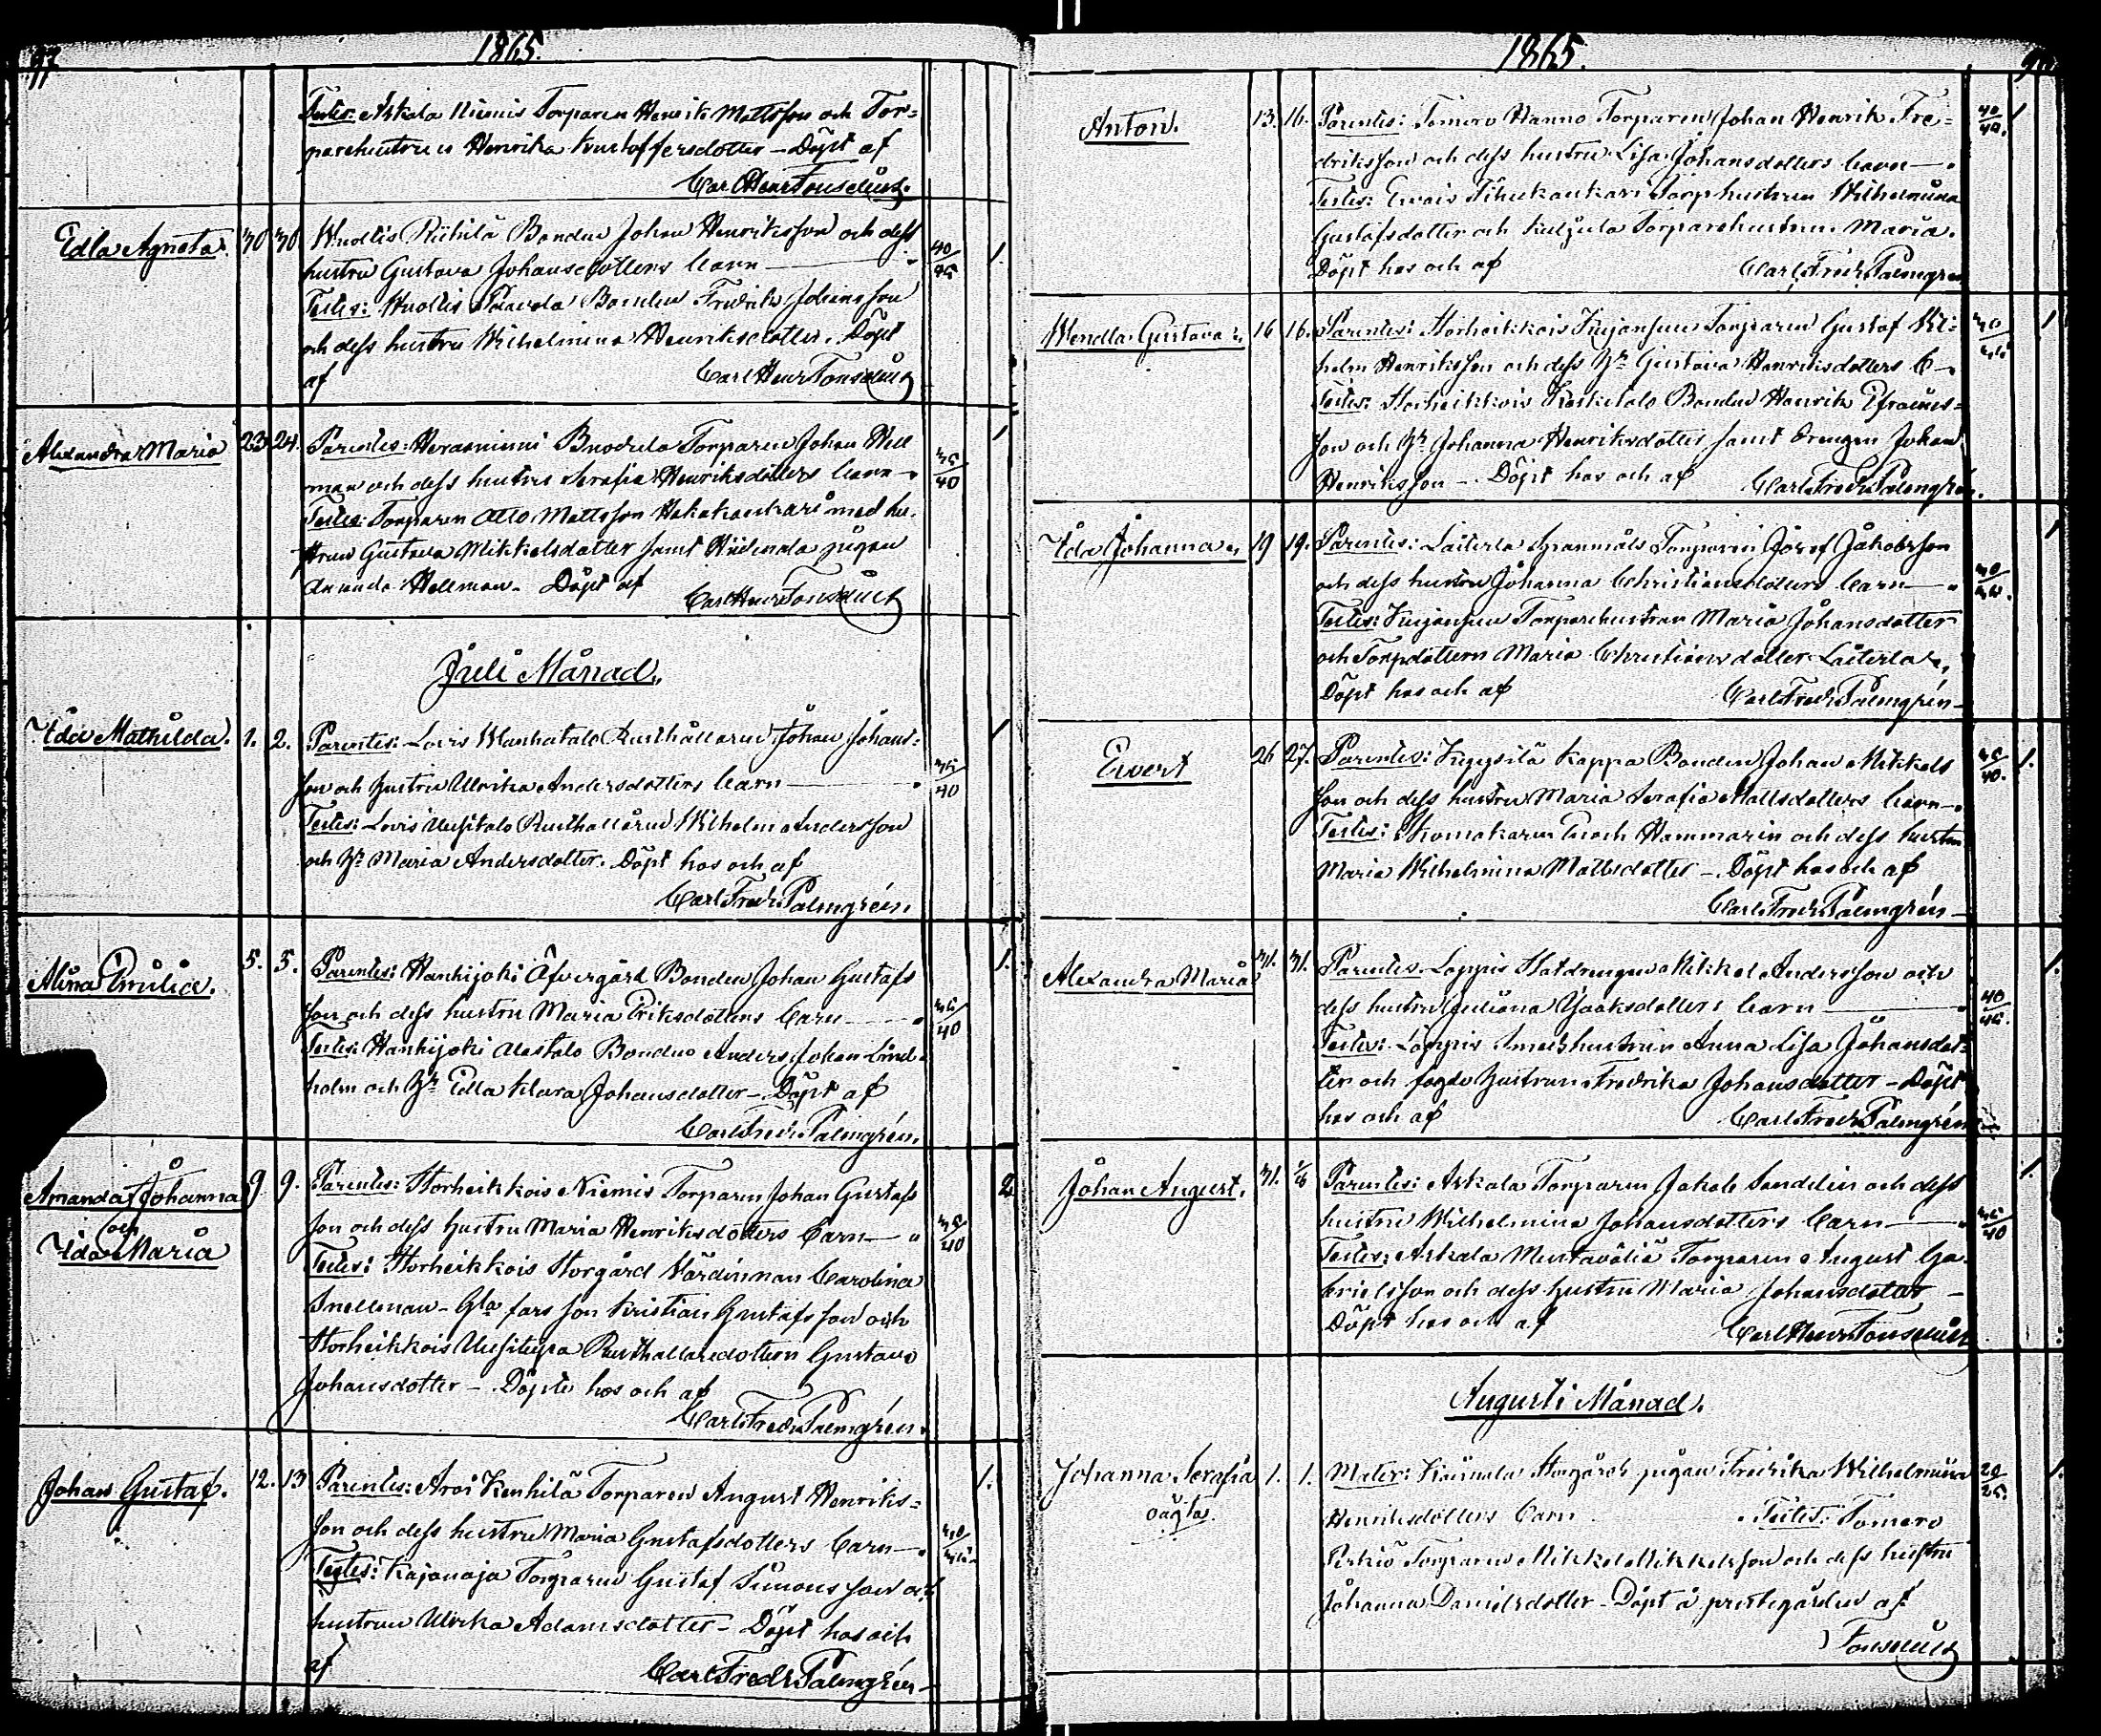 97
1865.
Testes: Askala Niemis Torparen Henrik Mattsson och Tor=
parehustrun Henrika Kristoffersdotter – Döpt af
Carl Henr Tonselius.
Edla Agneta. 30 30 Nuollis Riihilä Bonden Johan Henriksson och dess
hustru Gustava Johansdotters barn — 40/45 1.
Testes: Nuollis Paavola Bonden Fredrik Johansson
och dess hustru Wilhelmina Henriksdotter. Döpt
af Carl Henr Tonselius
Alexandra Maria 23. 24. Parentes: Torparen Johan Hell
man och dess hustru Serafia Henriksdotters barn – 35/40 1
Testes: Torparen Otto Mattsson med hu.
strun Gustava Mikkelsdotter samt pigan
Amanda Hellman. Döpt af Carl Henr Tonselius
Juli Månad.
Ida Mathilda. 1. 2. Parentes: Lovis Wanhatalo Rusthållaren Johan Johans=
son och hustru Ulrika Andersdotters barn — 35/40 1
Testes: Lovis Uusitalo Rusthållaren Wilhelm Andersson
och H: Maria Andersdotter. Döpt hos och af
Carl Fredr. Palmgrén.
Alina Emilia. 5. 5. Parentes: Hankijoki Öfvergård Bonden Johan Gustafs
son och dess hustru Maria Eriksdotters barn — 35/40 1.
Testes: Hankijoki Alastalo Bonden Anders Johan Lind=
holm och H: Edla Klara Johansdotter – Döpt af
Carl Fredr. Palmgrén.
Amanda Johanna 9 9. Parentes: Storheikkois Niemis Torparen Johan Gustafs
och
son och dess hustru Maria Henriksdotters barn — 35/40 2
Ida Maria
Testes: Storheikkois Storgård Värdinnan Carolina
Snellman – Gla fars son Kristian Gustafsson och
Storheikkois Uusitupa Rusthållaredottern Gustava
Johansdotter – Döpte hos och af
Carl Fredr. Palmgrén.
Johan Gustaf. 12. 13 Parentes: Aroi Kenhilä Torparen August Henriks=
son och dess hustru Maria Gustafsdotters barn — 1.
Testes: Kajanoja Torparen Gustaf Simonsson och
hustrun Ulrika Adamsdotter – Döpt hos och
af Carl Fredr. Palmgrén
1865.
Anton. 13. 16. Parentes: Tomero Hanno Torparen Johan Henrik Fre=
driksson och dess hustru Lisa Johansdotters barn — 40/40. 1
Testes: Torphustrun Wilhelmina
Gustafsdotter och Kuljula Torparehustrun Maria.
Döpt hos och af Carl Fredr. Palmgrén
Wendla Gustava 16 16. Parentes: Storheikkois Torparen Gustaf Wil=
helm Henriksson och dess H: Gustava Henriksdotters b – 1
Testes: Storheikkois Keskitalo Bonden Henrik Efraims=
son och H: Johanna Henriksdotter samt drengen Johan
Henriksson – Döpt hos och af Carl Fredr. Palmgrén.
Ida Johanna 19 19. Parentes: Laiterla Torparen Josef Jakobsson
och dess hustru Johanna Christiansdotters barn — 1
Testes: Torparehustrun Maria Johansdotter
och Torpdottern Maria Christiansdotter Laiterla,
Döpt hos och af Carl Fredr. Palmgrén
Evert 26 27. Parentes: Kyysilä Kappa Bonden Johan Mikkels
son och dess hustru Maria Serafia Mattsdotters barn – 35/40. 1.
Testes: Skomakaren Enoch Hammarin och dess hustru
Maria Wilhelmina Mattsdotter – Döpt hos och af
Carl Fredr. Palmgrén
Alexandra Maria 31. 31. Parentes. Loppis Statdrengen Mikkel Andersson och
dess hustru Juliana Isaksdotters barn — 40/45. 1.
Testes: Loppis Smedshustrun Anna Lisa Johansdot=
ter och fogde hustrun Fredrika Johansdotter – Döpt
hos och af Carl Fredr. Palmgrén
Johan August. 31. Parentes: Askala Torparen Jakob Sandelin och dess
hustru Wilhelmina Johansdotters barn — 35/40 1.
Testes: Askala Mustaväliä Torparen August Ga=
brielsson och dess hustru Maria Johansdotter –
Döpt hos och af Carl Henr Tonselius
Augusti Månad.
Johanna Serafia 1. 1. Mater: Storgårds pigan Fredrika Wilhelmina 20/25. 1.
oägta.
Henriksdotters barn. Testes: Tomero
Perkiö Torparen Mikkel Mikkelsson och dess hustru
Johanna Danielsdotter – Döpt å prestegården af
Tonselius